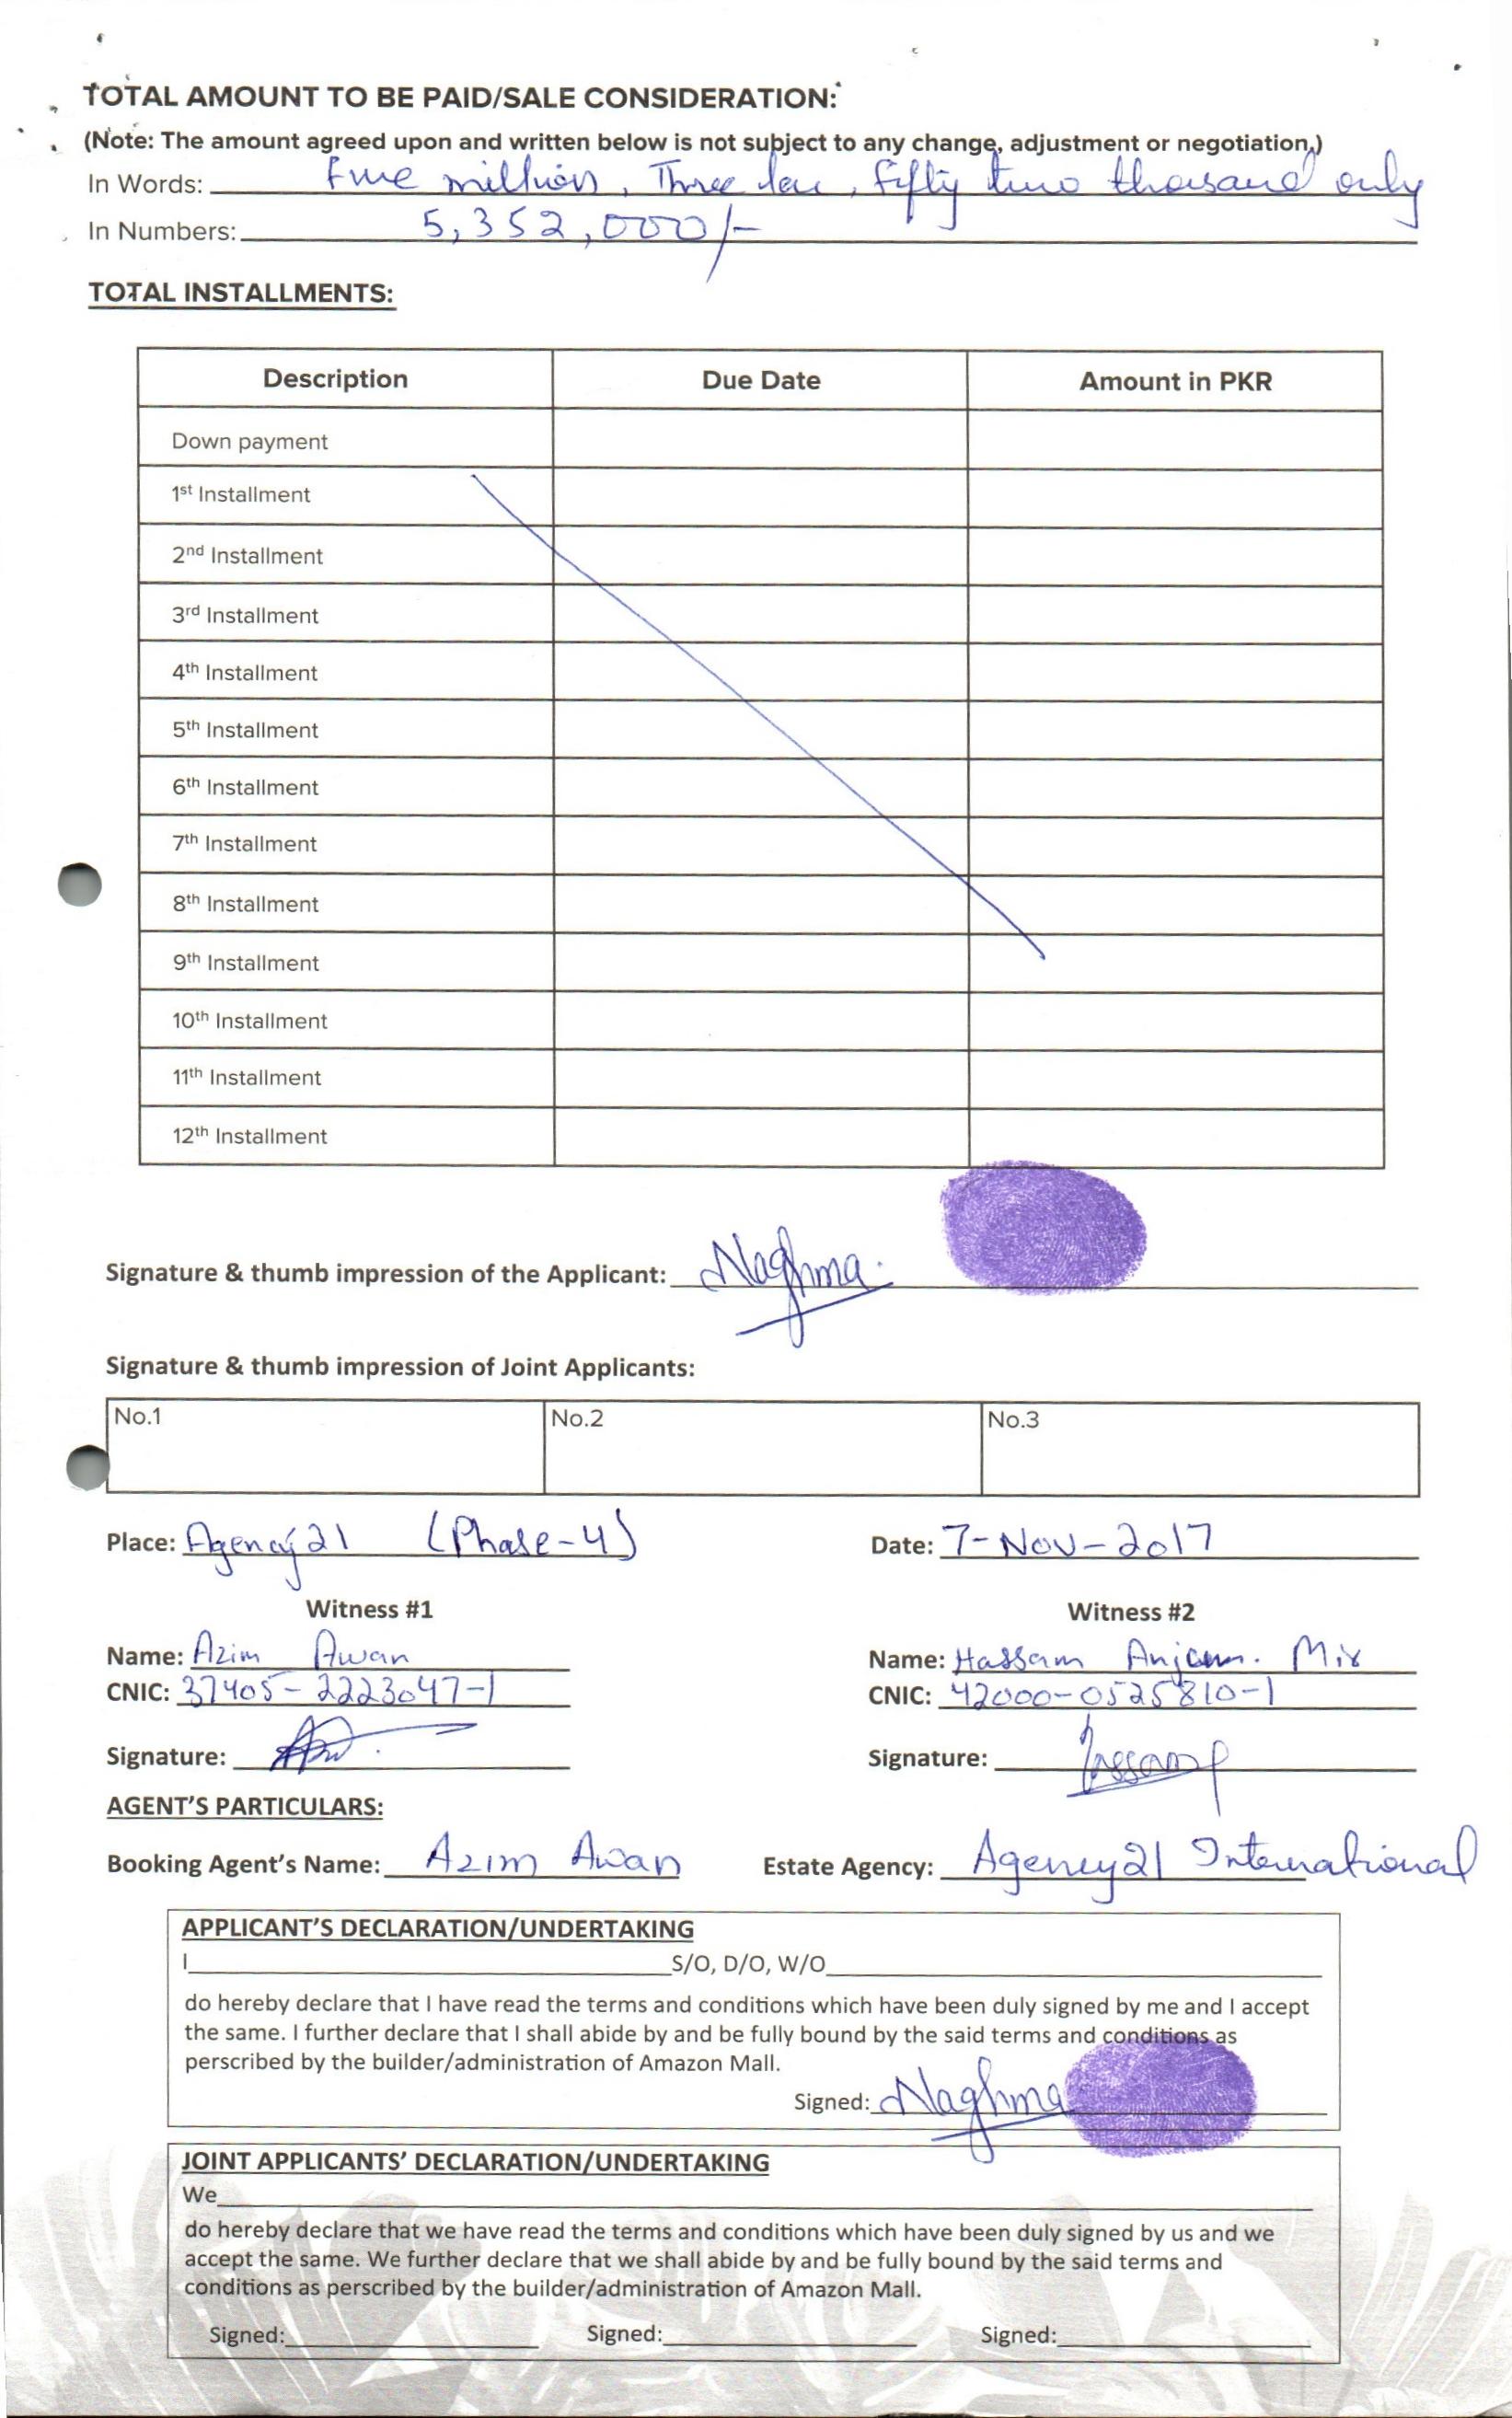 TOTAL AMOUNT TO BE PAID/SALE CONSIDERATION:
(Note: The amount agreed upon and written below is not subject to any change, adjustment or negotiation.)
In Words: Five million, Three lac, fifty two thousand only
In Numbers: 5,352,000/-
TOTAL INSTALLMENTS:
Description Due Date Amount in PKR
Down payment
1st Installment
2nd Installment
3rd Installment
4th Installment
5th Installment
6th Installment
7th Installment
8th Installment
9th Installment
10th Installment
11th Installment
12th Installment
Signature & thumb impression of the Applicant: Naghma
Signature & thumb impression of Joint Applicants:
No.1 No.2 No.3
Place: Agency21 (Phase-4) Date: 7-Nov-2017
Witness #1 Witness #2
Name: Azim Awan Name: Hassam Anjam. Mir
CNIC: 37405-2223047-1 CNIC: 42000-0525810-1
Signature: Signature:
AGENT'S PARTICULARS:
Booking Agent's Name: Azim Awan Estate Agency: Agency21 International
APPLICANT'S DECLARATION/UNDERTAKING
I S/O, D/O, W/O
do hereby declare that I have read the terms and conditions which have been duly signed by me and I accept
the same. I further declare that I shall abide by and be fully bound by the said terms and conditions as
perscribed by the builder/administration of Amazon Mall.
Signed: Naghma
JOINT APPLICANTS' DECLARATION/UNDERTAKING
We
do hereby declare that we have read the terms and conditions which have been duly signed by us and we
accept the same. We further declare that we shall abide by and be fully bound by the said terms and
conditions as perscribed by the builder/administration of Amazon Mall.
Signed: Signed: Signed: